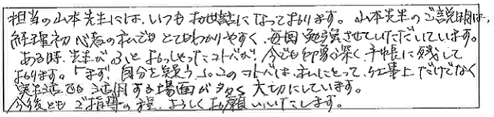 担当の山本先生には、いつもお世話になっております。山本先生のご説明は、
経理初心者の私でもとてもわかりやすく、毎回勉強させていただいています。
ある時、先生がふとおっしゃったコトバが、今でも印象深く手帳に残して
おります。「まず自分を疑う」。このコトバは、私にとって、仕事上だけでなく
実生活でも通用する場面が多く大切にしています。
今後ともご指導の程、よろしくお願いいたします。